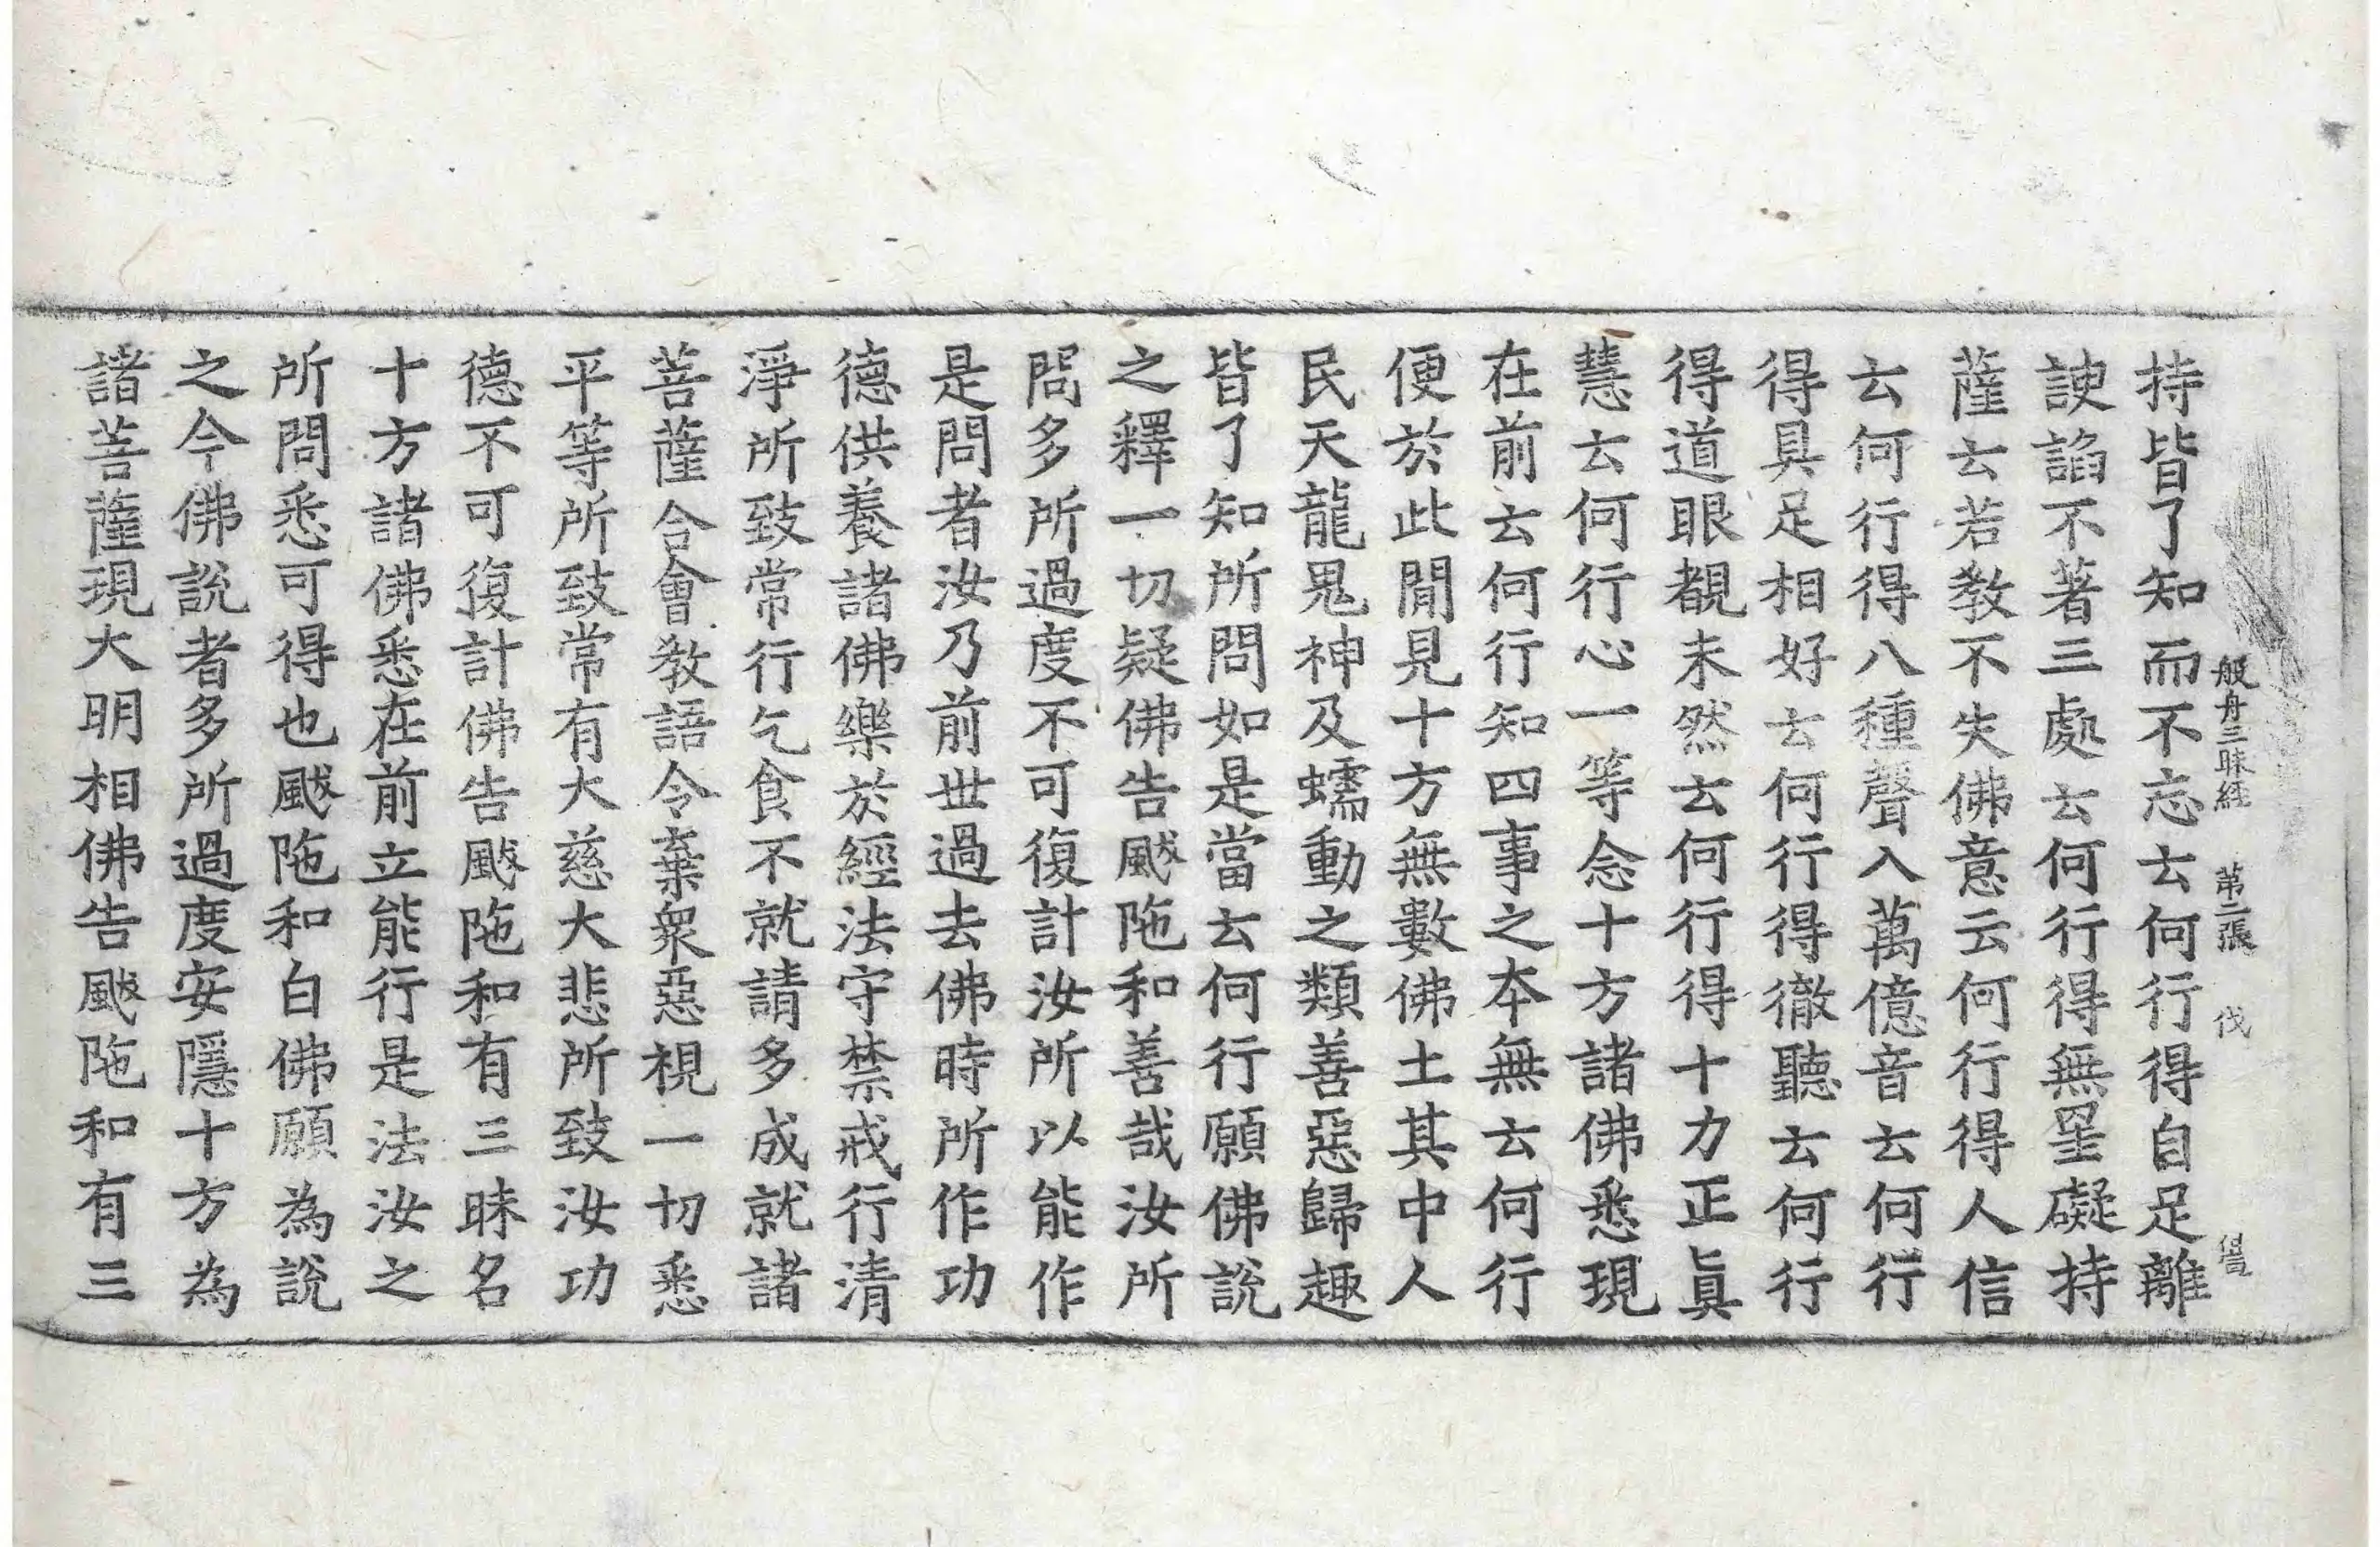 般舟三昧經 第二張 伐
持皆了知而不忘云何行得自足離
諛諂不著三處云何行得無罣礙持
薩云若教不失佛意云何行得人信
云何行得八種聲入萬億音云何行
得具足相好云何行得徹聽云何行
得道眼覩未然云何行得十力正眞
慧云何行心一等念十方諸佛悉現
在前云何行知四事之本無云何行
便於此閒見十方無數佛土其中人
民天龍鬼神及蠕動之類善惡歸趣
皆了知所問如是當云何行願佛說
之釋一切疑佛告颰陁和善哉汝所
問多所過度不可復計汝所以能作
是問者汝乃前世過去佛時所作功
德供養諸佛樂於經法守禁戒行清
淨所致常行乞食不就請多成就諸
菩薩合會教語令棄衆惡視一切悉
平等所致常有大慈大悲所致汝功
德不可復計佛告颰陁和有三昧名
十方諸佛悉在前立能行是法汝之
所問悉可得也颰陁和白佛願為說
之今佛說者多所過度安隱十方為
諸菩薩現大明相佛告颰陁和有三